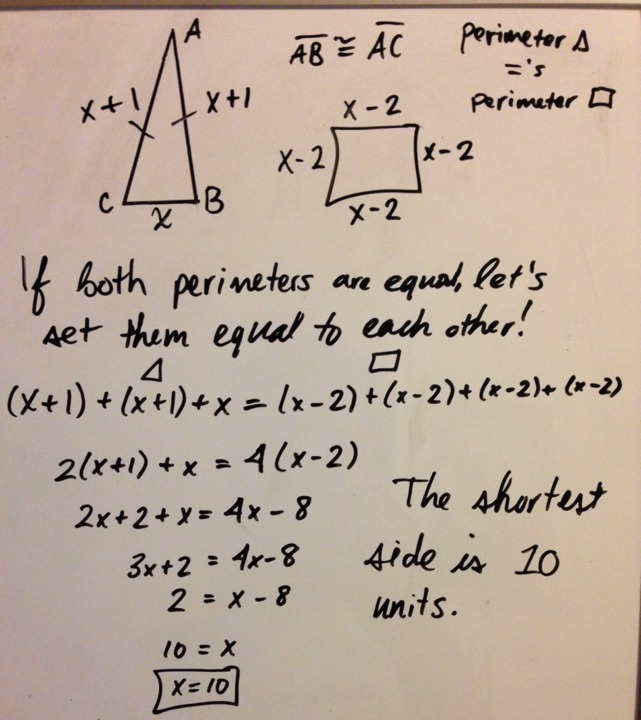 A
x+1
x+1
C
B
x
AB ≅ AC
perimeter △
='s
perimeter □
x-2
x-2
x-2
x-2
If both perimeters are equal, let's
set them equal to each other!
△ □
(x+1) + (x+1) + x = (x-2) + (x-2) + (x-2) + (x-2)
2(x+1) + x = 4(x-2)
2x+2+x = 4x-8
3x+2 = 4x-8
2 = x-8
10 = x
x=10
The shortest
side is 10
units.